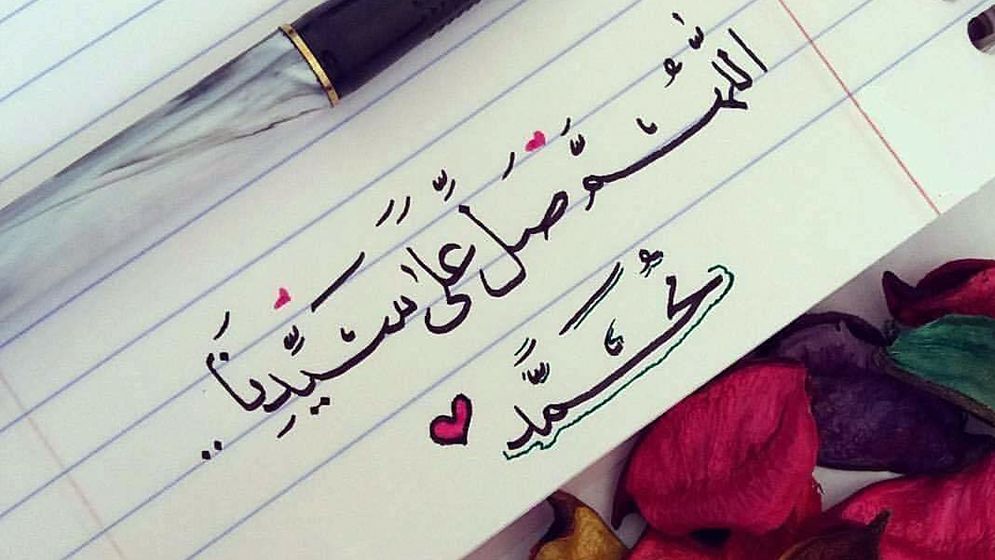 اللّٰهُمَّ صَلِّ عَلَىٰ سَيِّدِنَا ..
مُحَمَّدٍ